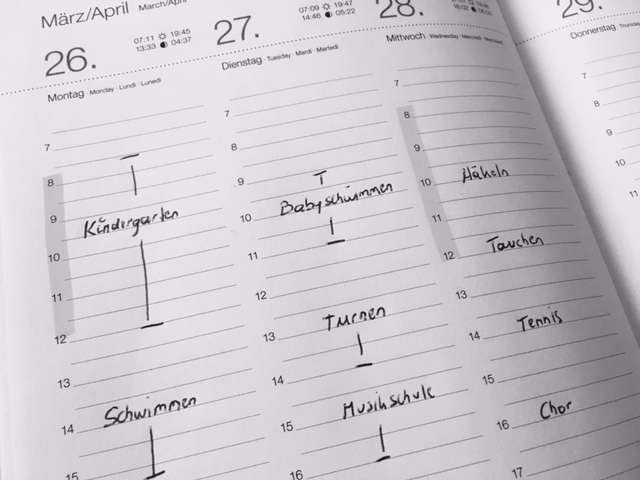 März/April March/April
26.
07:11 19:45
13:33 04:37
Montag · Monday · Lundi · Lunedì
7
8
9
Kindergarten
10
11
12
13
Schwimmen
14
15
27.
07:09 19:47
14:46 05:22
Dienstag · Tuesday · Mardi · Martedì
7
8
9
Babyschwimmen
10
11
12
Turnen
13
14
Musikschule
15
16
28.
Mittwoch · Wednesday · Mercredi · Mercoledì
7
8
9
10 Häkeln
11
12 Tauchen
13
14 Tennis
15
16 Chor
17
29.
Donnerstag · Thursday
7
8
9
10
11